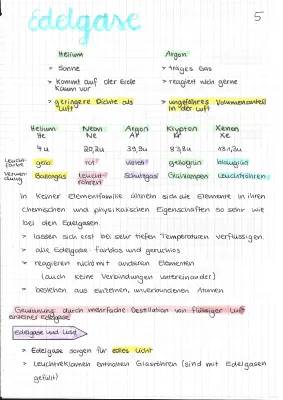 Edelgase
5
Helium Argon
> Sonne > träges Gas
> Kommt auf der Erde kaum vor > reagiert nicht gerne
> geringere Dichte als Luft > ungefähres Volumenanteil in der Luft
Helium Neon Argon Krypton Xenon
He Ne Ar Kr Xe
4u 20,2u 39,9u 83,8u 131,3u
Leucht-farbe gelb rot violett gelbgrün blaugrün
Verwen-dung Ballongas Leuchtröhren Schutzgas Glühlampen Leuchtröhren
In keiner Elementfamilie ähneln sich die Elemente in ihren
chemischen und physikalischen Eigenschaften so sehr wie
bei den Edelgasen.
> lassen sich erst bei sehr tiefen Temperaturen verflüssigen
> alle Edelgase farblos und geruchlos
> reagieren nicht mit anderen Elementen
(auch keine Verbindungen untereinander)
> bestehen aus einzelnen, unverbundenen Atomen
Gewinnung: durch mehrfache Destillation von flüssiger Luft
einzelner Edelgase
Edelgase und Licht
> Edelgase sorgen für edles Licht
> Leuchtreklamen enthalten Glasröhren (sind mit Edelgasen
gefüllt)